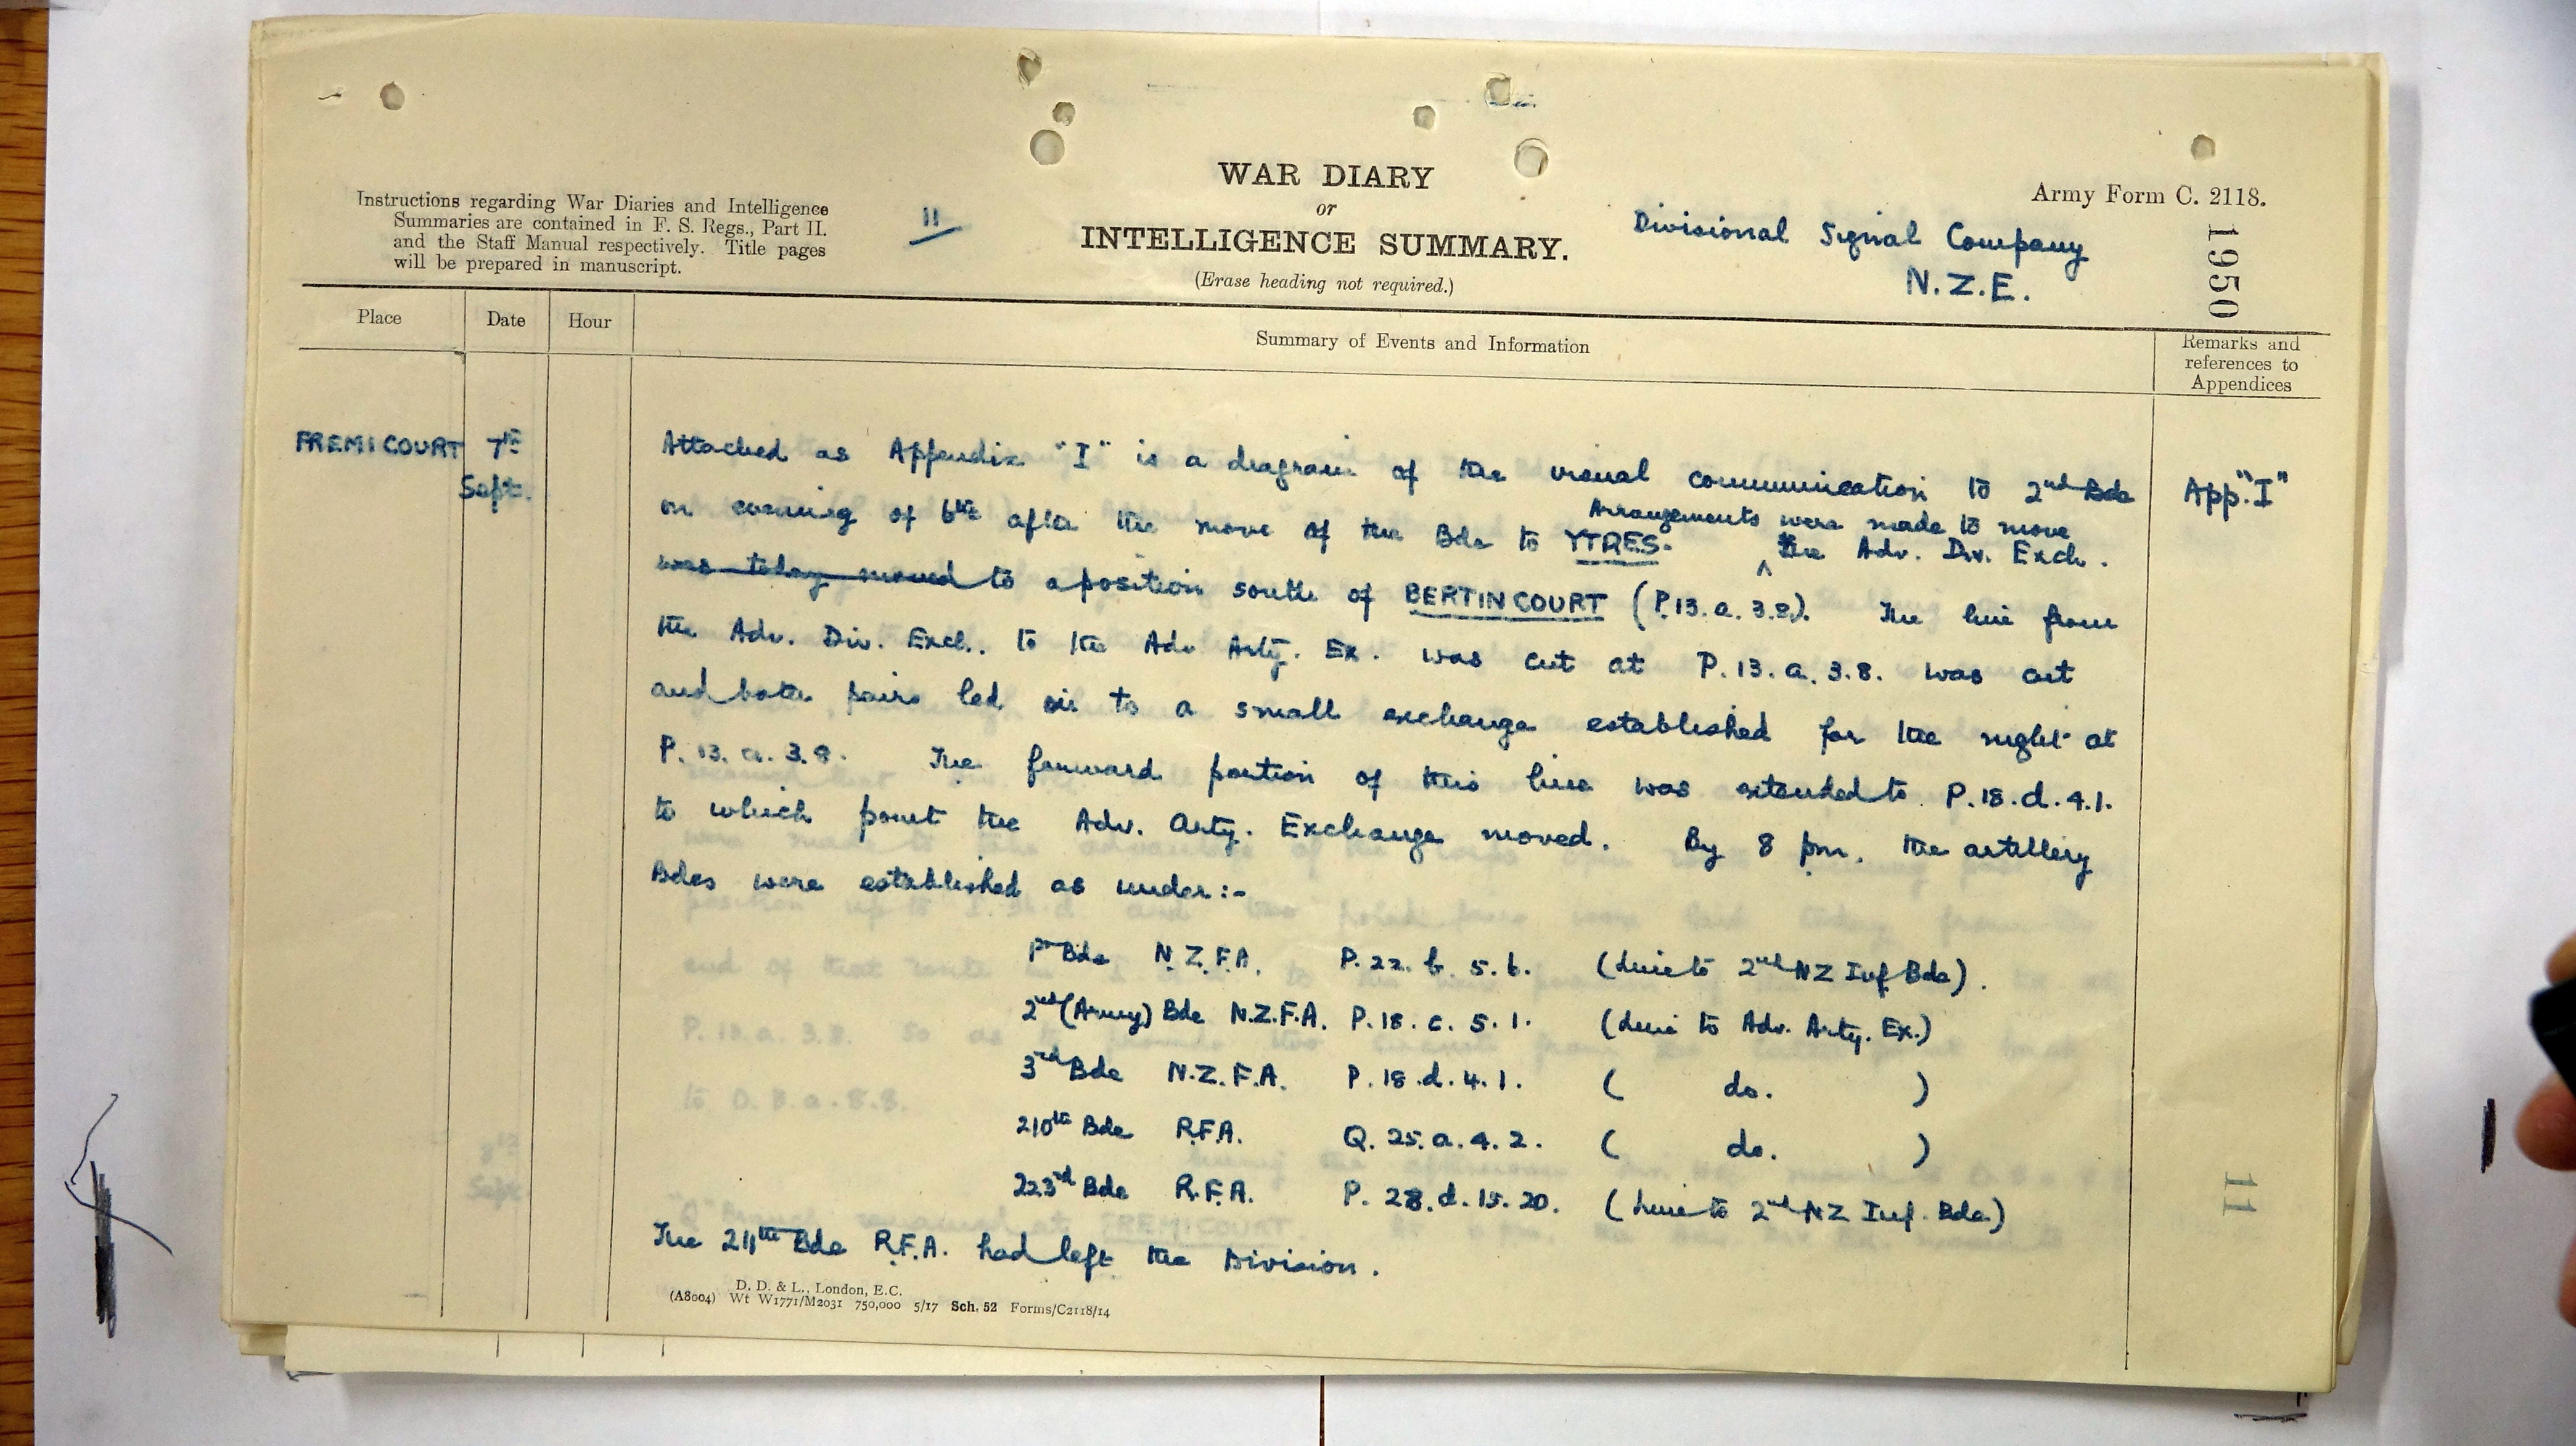 WAR DIARY
or
INTELLIGENCE SUMMARY.
(Erase heading not required.)
Army Form C. 2118.
Instructions regarding War Diaries and Intelligence
Summaries are contained in F. S. Regs., Part II.
and the Staff Manual respectively. Title pages
will be prepared in manuscript.
11
Divisional Signal Company
N.Z.E.
1950
Place Date Hour Summary of Events and Information Remarks and
references to
Appendices
FREMICOURT 7th
Sept.
Attached as Appendix "I" is a diagram of the visual communication to 2nd Bde App. "I"
on evening of 6th after the move of the Bde to YTRES. Arrangements were made to move the Adv. Div. Exch.
was today moved to a position south of BERTINCOURT (P.13.a.3.8). The line from
the Adv. Div. Exch. to the Adv Arty. Ex. was cut at P.13.a.3.8. was cut
and both pairs led in to a small exchange established for the night at
P.13.a.3.8. The forward portion of this line was extended to P.18.d.4.1.
to which point the Adv. Arty. Exchange moved. By 8 pm. the artillery
Bdes were established as under:-
1st Bde N.Z.F.A. P.22.b.5.6. (line to 2nd NZ Inf Bde).
2nd (Army) Bde N.Z.F.A. P.18.c.5.1. (line to Adv. Arty. Ex.)
3rd Bde N.Z.F.A. P.18.d.4.1. ( do. )
210th Bde R.F.A. Q.25.a.4.2. ( do. )
223rd Bde R.F.A. P.28.d.15.20. (line to 2nd NZ Inf. Bde.)
The 211th Bde R.F.A. had left the Division.
11
D. D. & L., London, E.C.
(A8004) Wt W1771/M2031 750,000 5/17 Sch. 52 Forms/C2118/14